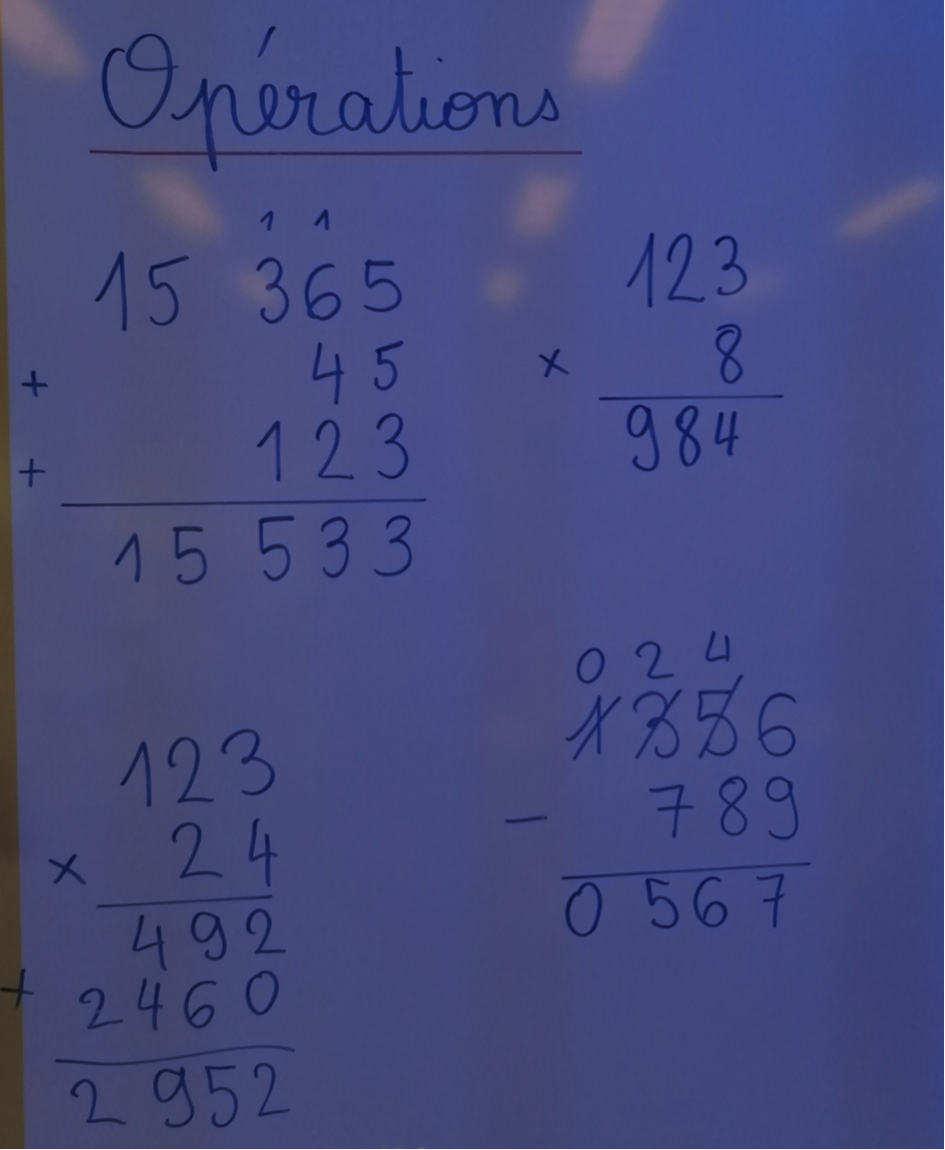 Opérations
1 1
15 365
+ 45
+ 123
15 533
123
x 8
984
123
x 24
492
+ 2460
2952
0 2 4
1356
- 789
0567